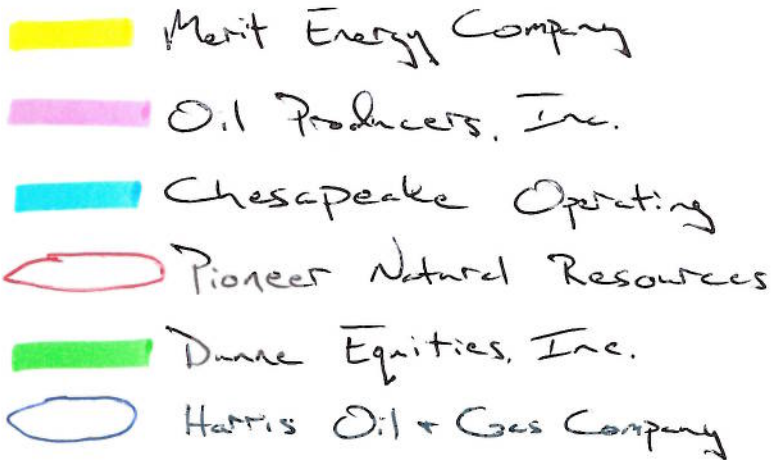 Merit Energy Company
Oil Producers, Inc.
Chesapeake Operating
Pioneer Natural Resources
Dunne Equities, Inc.
Harris Oil + Gas Company